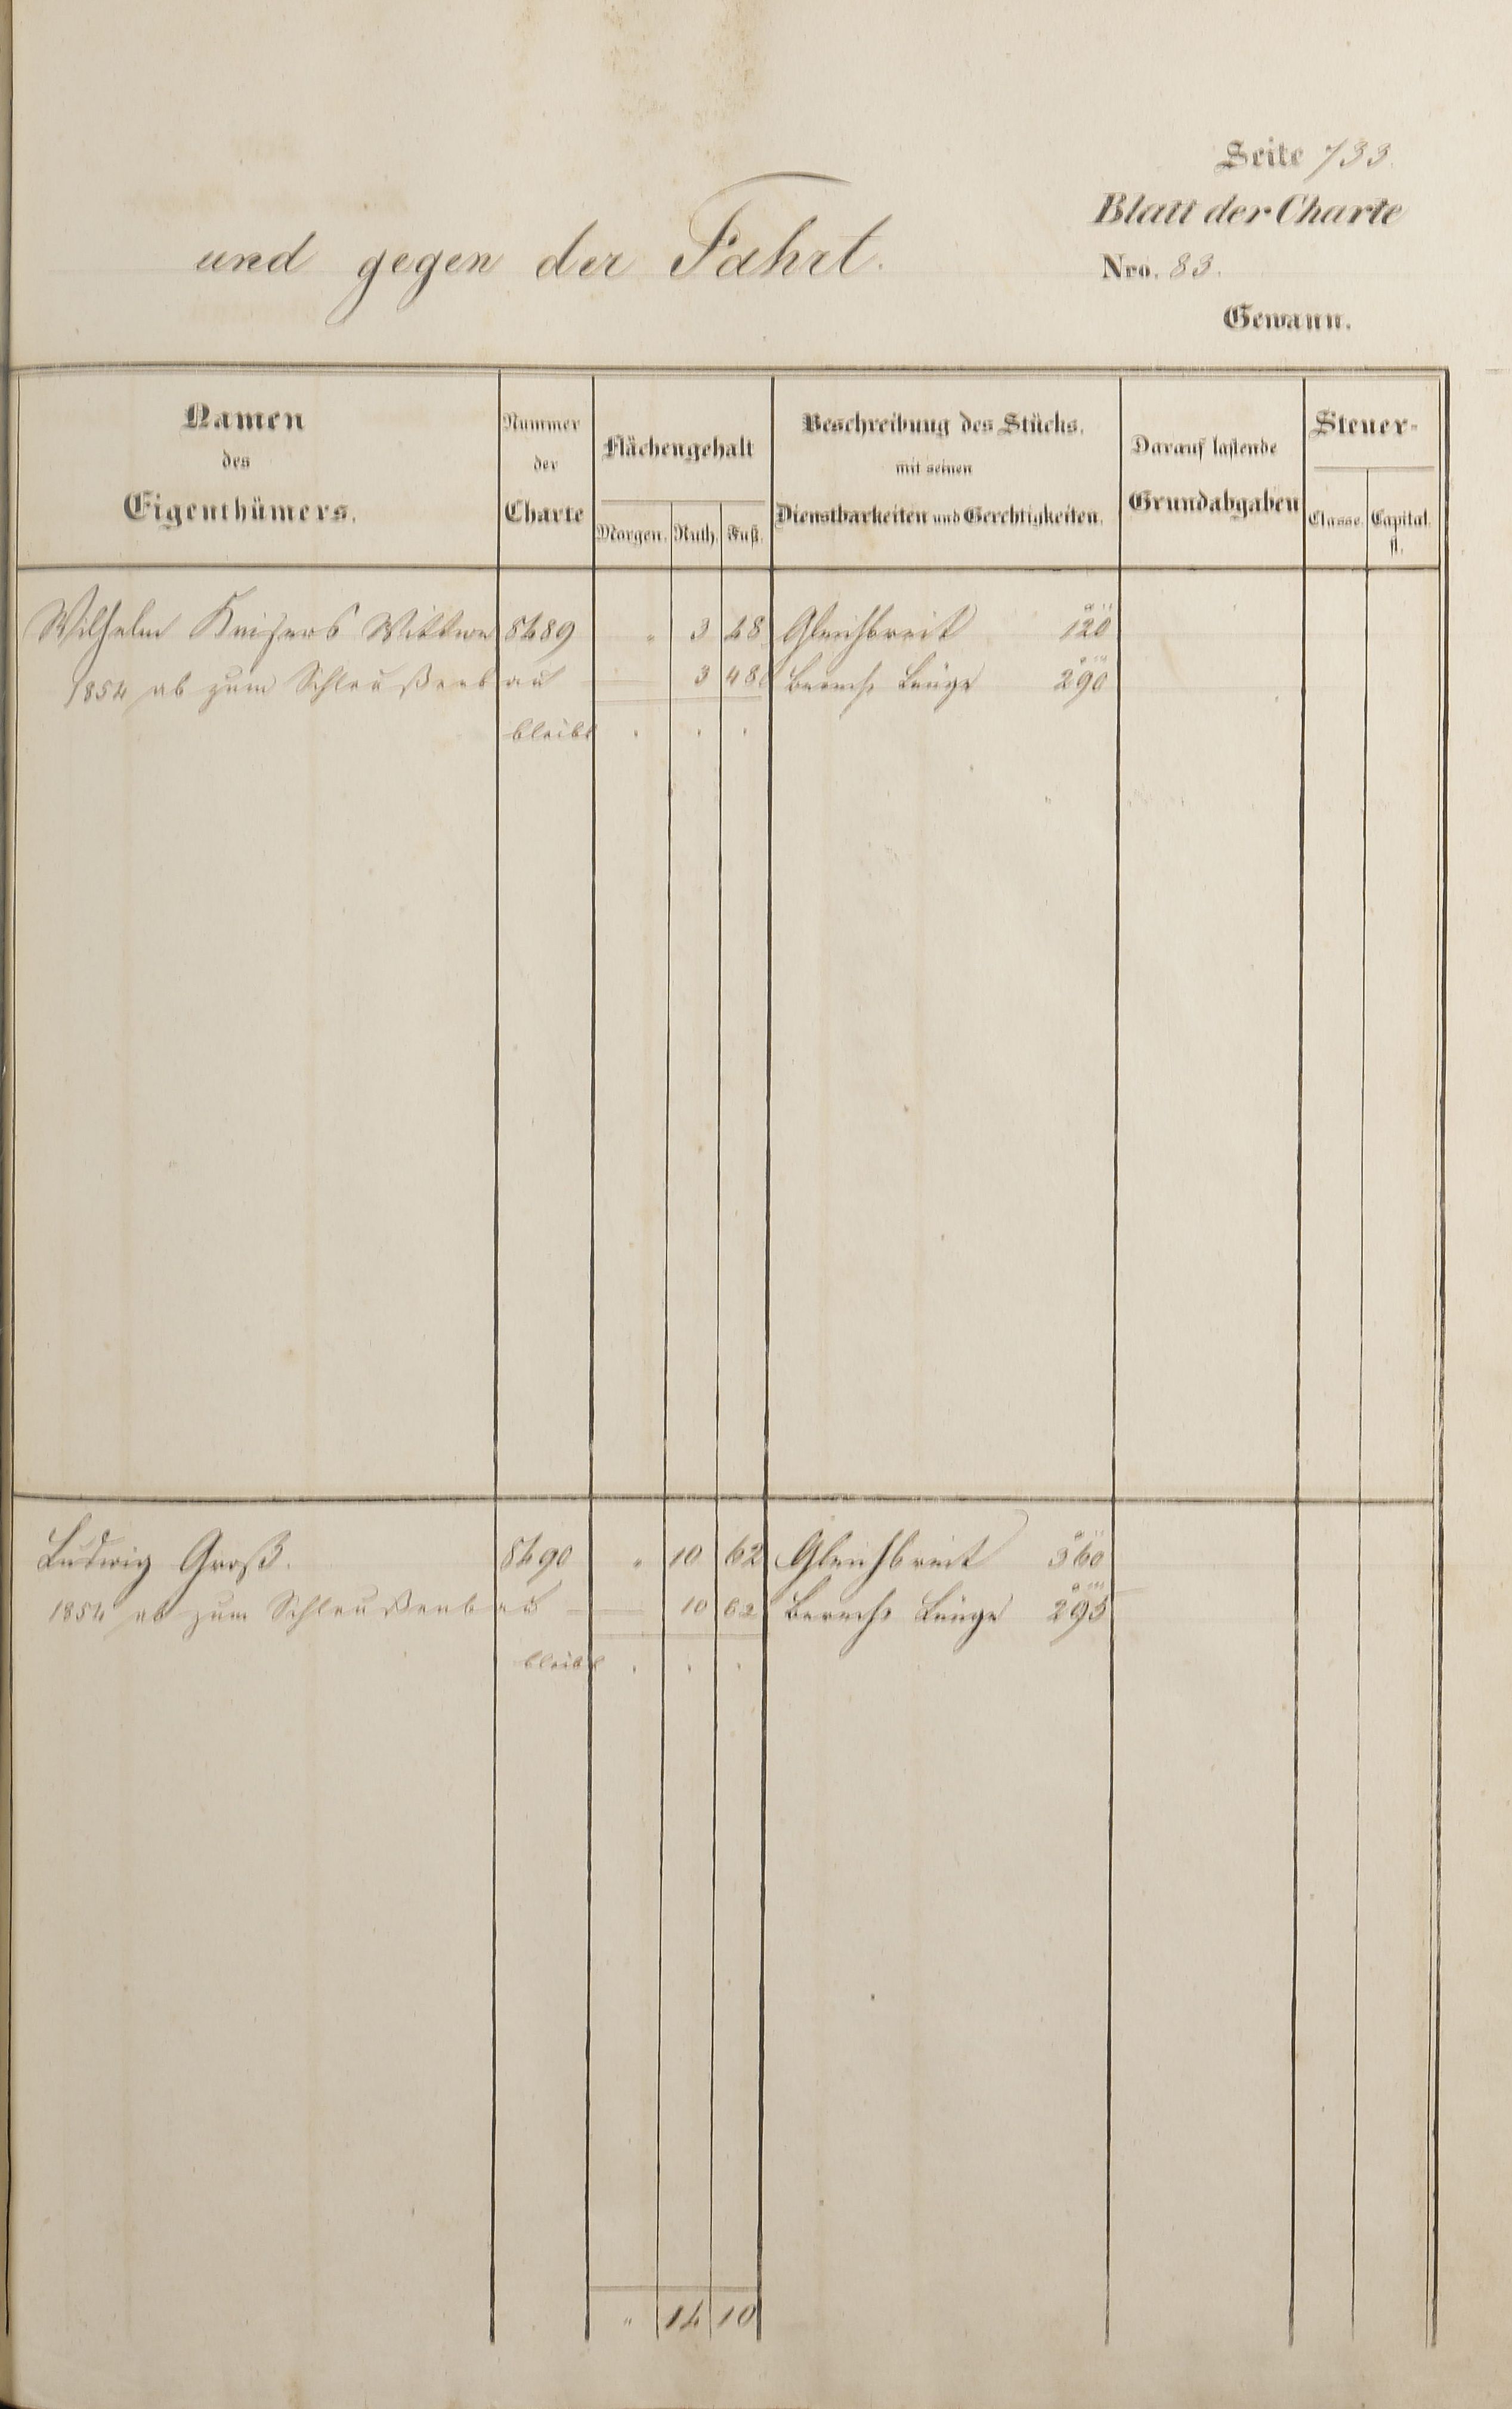 Seite 733.
Blatt der Charte
und gegen der Fahrt.
Nro. 83.
Gewann.
Namen des Eigenthümers.
Nummer der Charte
Flächengehalt
Morgen. Ruth. Fuß.
Beschreibung des Stücks. mit seinen Dienstbarkeiten und Gerechtigkeiten.
Darauf lastende Grundabgaben
Steuer-
Classe. Capital. fl.
Wilhelm Kaisers Wittwe 8489 " 3 48 Gleichbreit 120
1854 ab zum Schleußenbau 3 48 Berech. Länge 290
bleibt . . .
Ludwig Groß. 8490 " 10 62 Gleichbreit 360
1854 ab zum Schleußenbau 10 62 Berech. Länge 295
bleibt . . .
" 14 10